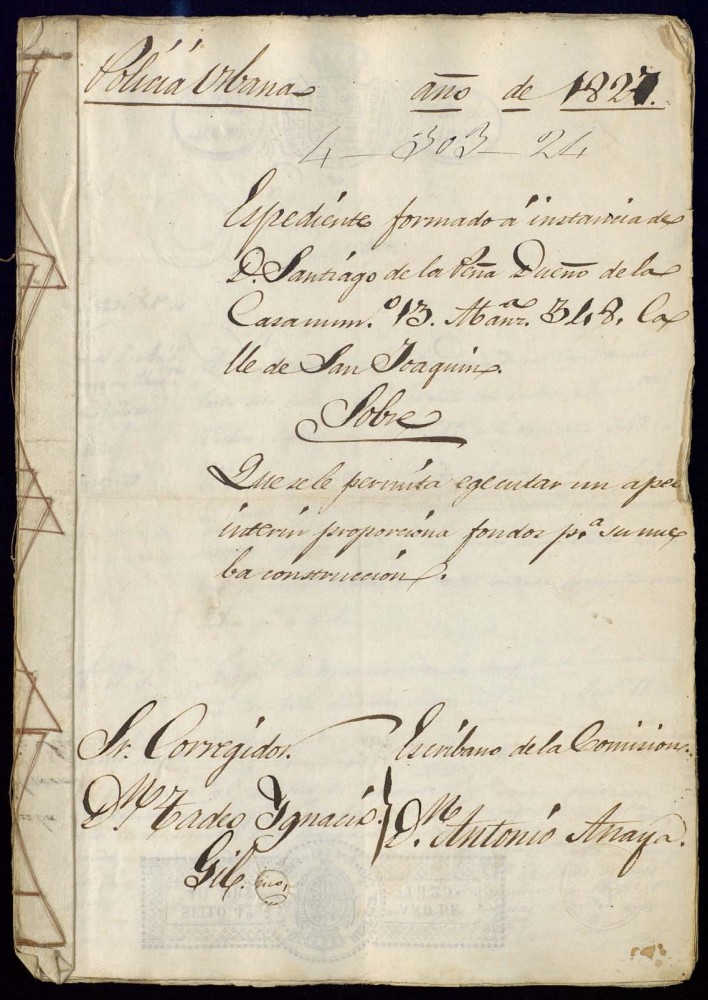 Policía Urbana año de 1827.
4-303-24
Espediente formado á instancia de
D. Santiago de la Peña Dueño de la
Casa num.º 13. Manz.ª 348. Ca
lle de San Joaquin.
Sobre
Que se le permita egecutar un apeo
interin proporciona fondos p.ª su nue
ba construccion.
Sr. Corregidor. Escribano de la Comision.
D.n Tadeo Ignacio D.n Antonio Anaya.
Gil.